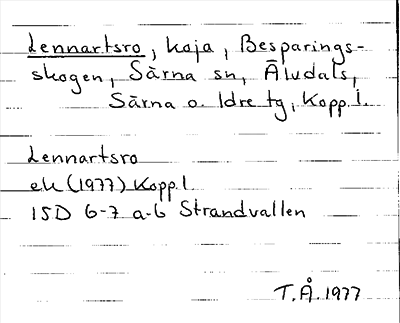 Lennartsro, koja, Besparings-
skogen, Särna sn, Äludals,
Särna o. Idre tg, Kopp. l.
Lennartsro
ek (1977) Kopp l.
15D 6-7 a-b Strandvallen
T.Å. 1977